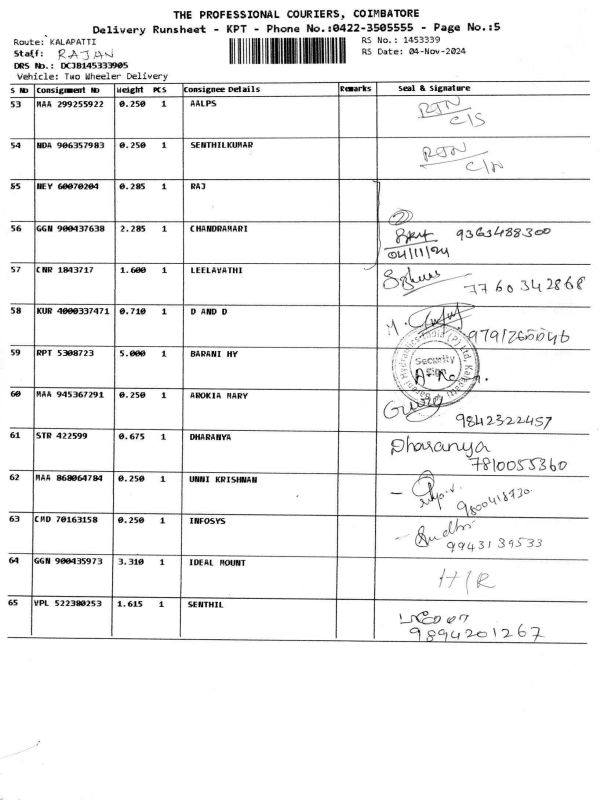 THE PROFESSIONAL COURIERS, COIMBATORE
Delivery Runsheet - KPT - Phone No.:0422-3505555 - Page No.:5
Route: KALAPATTI RS No.: 1453339
Staff: RAJAN RS Date: 04-Nov-2024
DRS No.: DCJB145333905
Vehicle: Two Wheeler Delivery
S No Consignment No Weight PCS Consignee Details Remarks Seal & Signature
53 MAA 299255922 0.250 1 AALPS RTN
C/S
54 NDA 906357983 0.250 1 SENTHILKUMAR RTN
C/N
55 NEY 60070204 0.285 1 RAJ
2
56 GGN 900437638 2.285 1 CHANDRAMARI 9363488300
04/11/24
57 CNR 1843717 1.600 1 LEELAVATHI
7760342868
58 KUR 4000337471 0.710 1 D AND D M.
59 RPT 5308723 5.000 1 BARANI HY
Security
60 MAA 945367291 0.250 1 AROKIA MARY
9842322457
61 STR 422599 0.675 1 DHARANYA Dharanya
7810055360
62 MAA 868064784 0.250 1 UNNI KRISHNAN
9800418730
63 CMD 70163158 0.250 1 INFOSYS Sudhi
9943139533
64 GGN 900435973 3.310 1 IDEAL MOUNT H/R
65 VPL 522380253 1.615 1 SENTHIL
9894201267